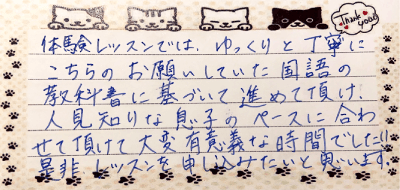 Thank you!
体験レッスンでは、ゆっくりと丁寧に
こちらのお願いしていた国語の
教科書に基づいて進めて頂け、
人見知りな息子のペースに合わ
せて頂けて大変有意義な時間でした!!
是非レッスンを申し込みたいと思います。